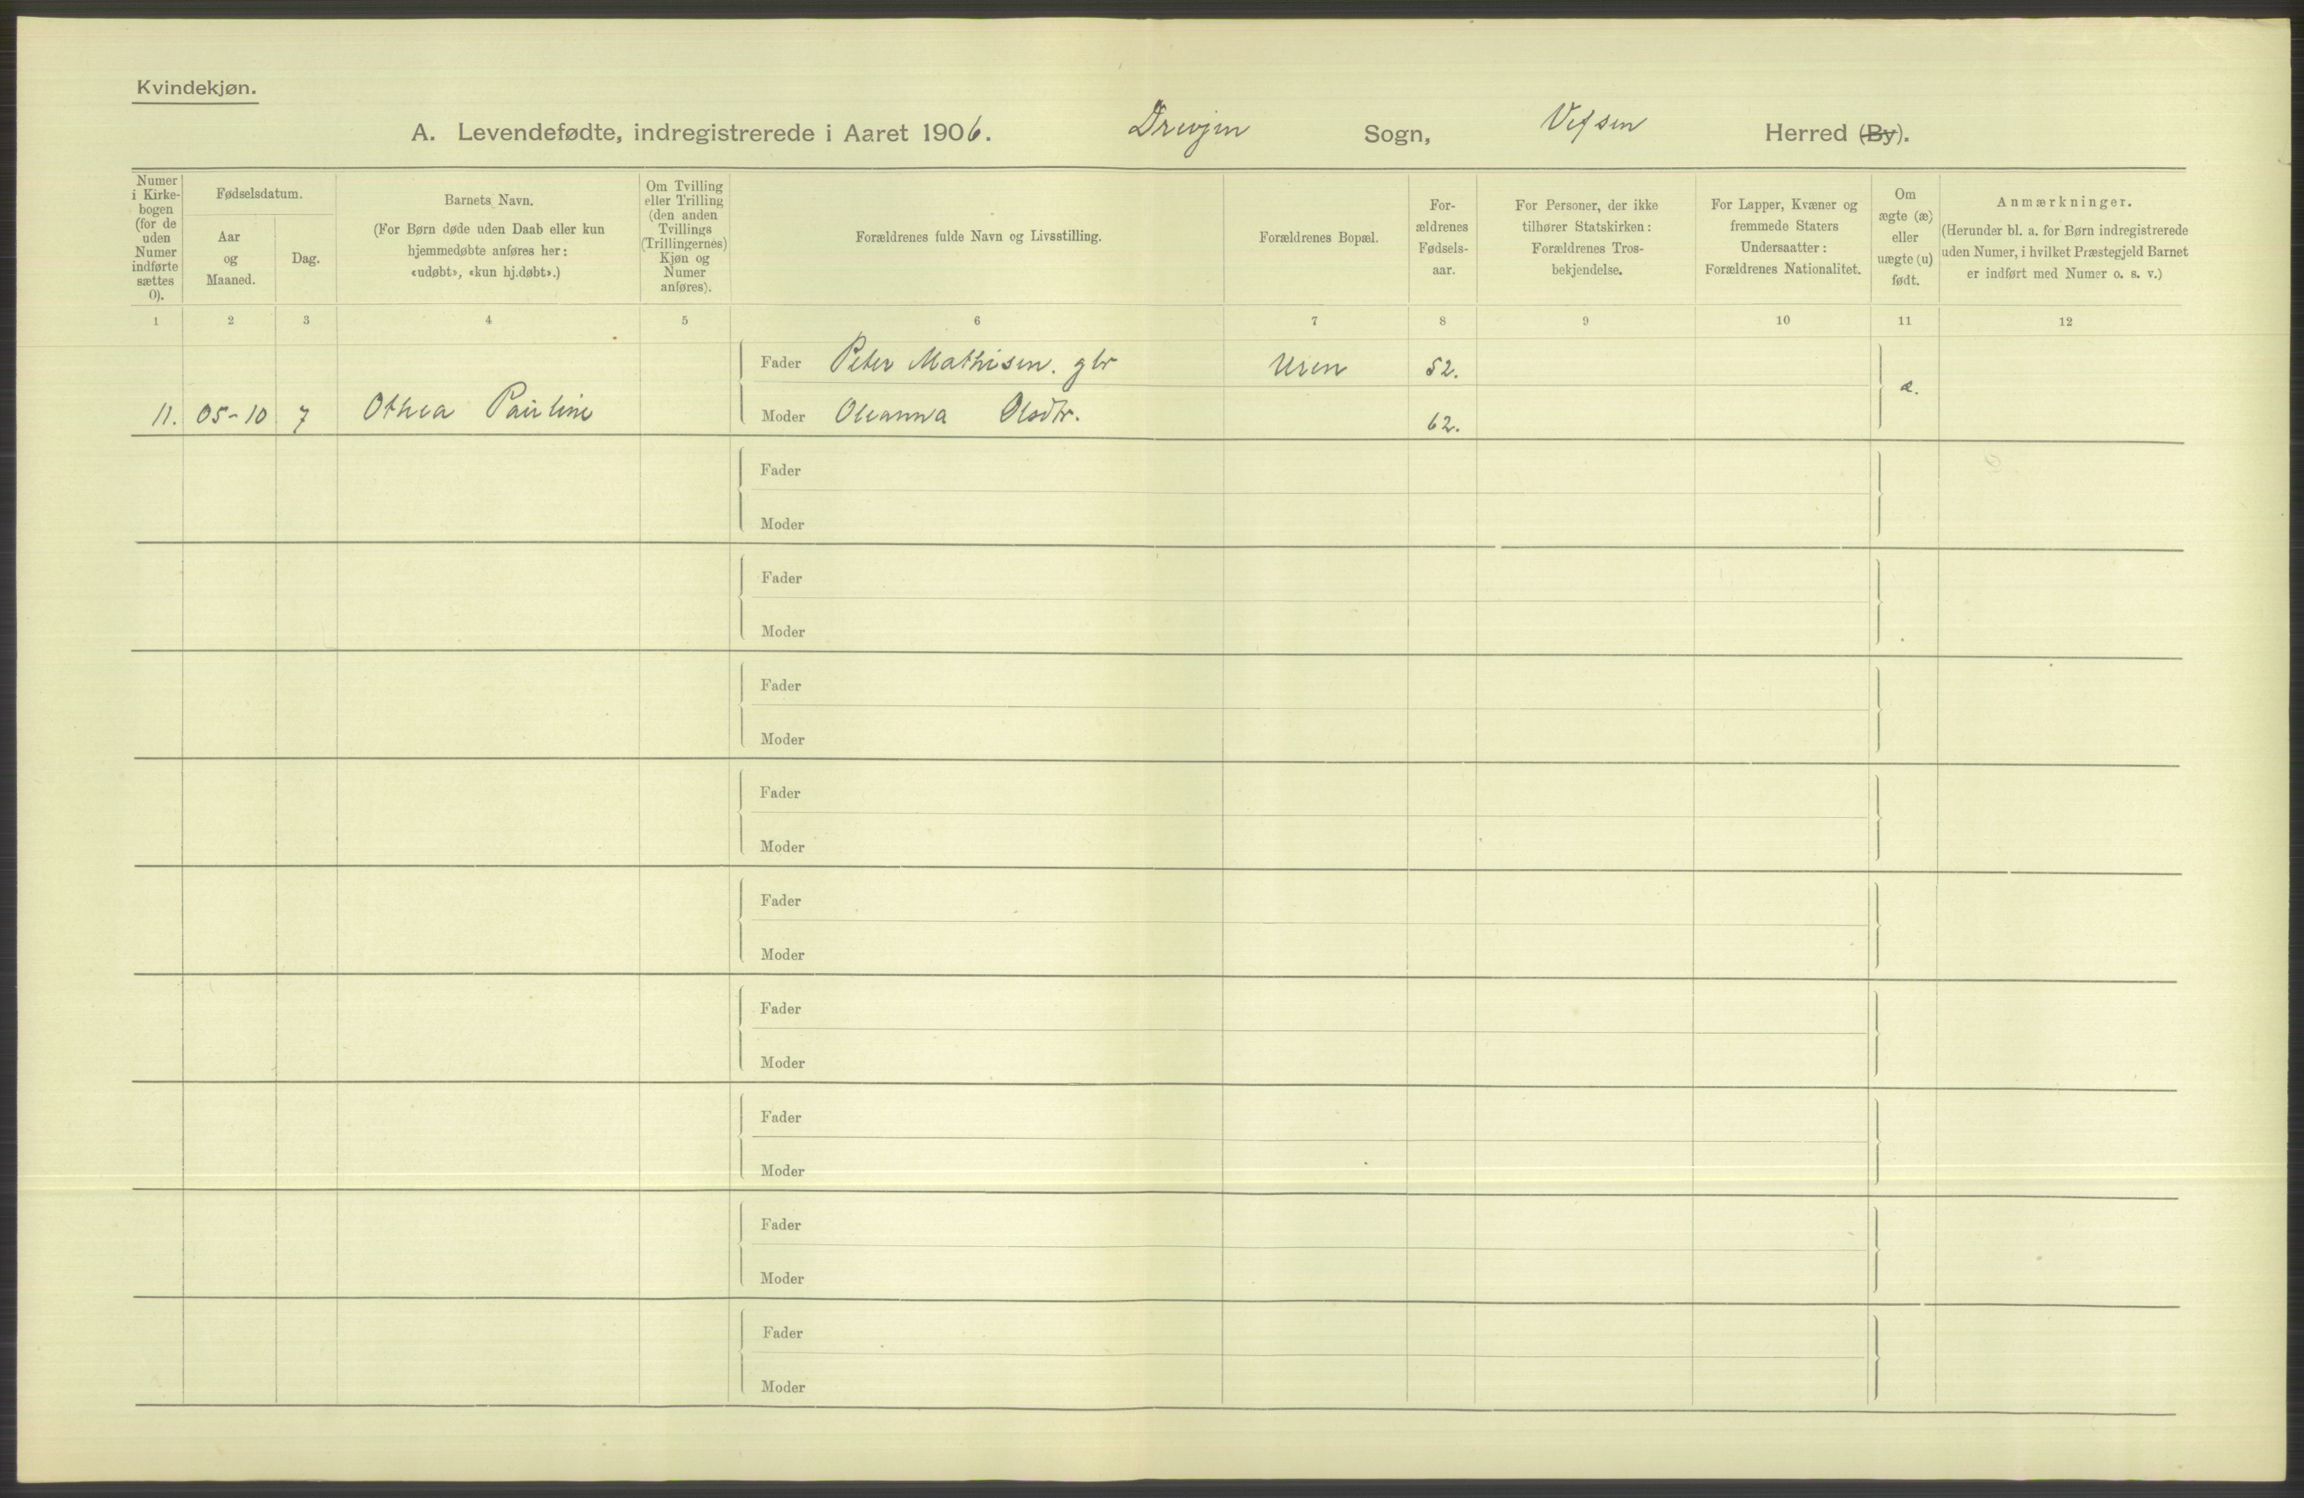 Kvindekjøn.
A. Levendefødte, indregistrerede i Aaret 1906. Drevjen Sogn, Vefsen Herred (By).
Numer i Kirkebogen (for de uden Numer indførte sættes 0).
Fødselsdatum.
Aar og Maaned.
Dag.
Barnets Navn.
(For Børn døde uden Daab eller kun hjemmedøbte anføres her: «udøbt», «kun hj.døbt».)
Om Tvilling eller Trilling (den anden Tvillings (Trillingernes) Kjøn og Numer anføres).
Forældrenes fulde Navn og Livsstilling.
Forældrenes Bopæl.
Forældrenes Fødselsaar.
For Personer, der ikke tilhører Statskirken: Forældrenes Trosbekjendelse.
For Lapper, Kvæner og fremmede Staters Undersaatter: Forældrenes Nationalitet.
Om ægte (æ) eller uægte (u) født.
Anmærkninger.
(Herunder bl. a. for Børn indregistrerede uden Numer, i hvilket Præstegjeld Barnet er indført med Numer o. s. v.)
1 2 3 4 5 6 7 8 9 10 11 12
Fader Peter Mathisen. gbr Uren 52. æ.
11. 05-10 7 Othea Pauline Moder Oleanna Olsdtr. 62.
Fader
Moder
Fader
Moder
Fader
Moder
Fader
Moder
Fader
Moder
Fader
Moder
Fader
Moder
Fader
Moder
Fader
Moder